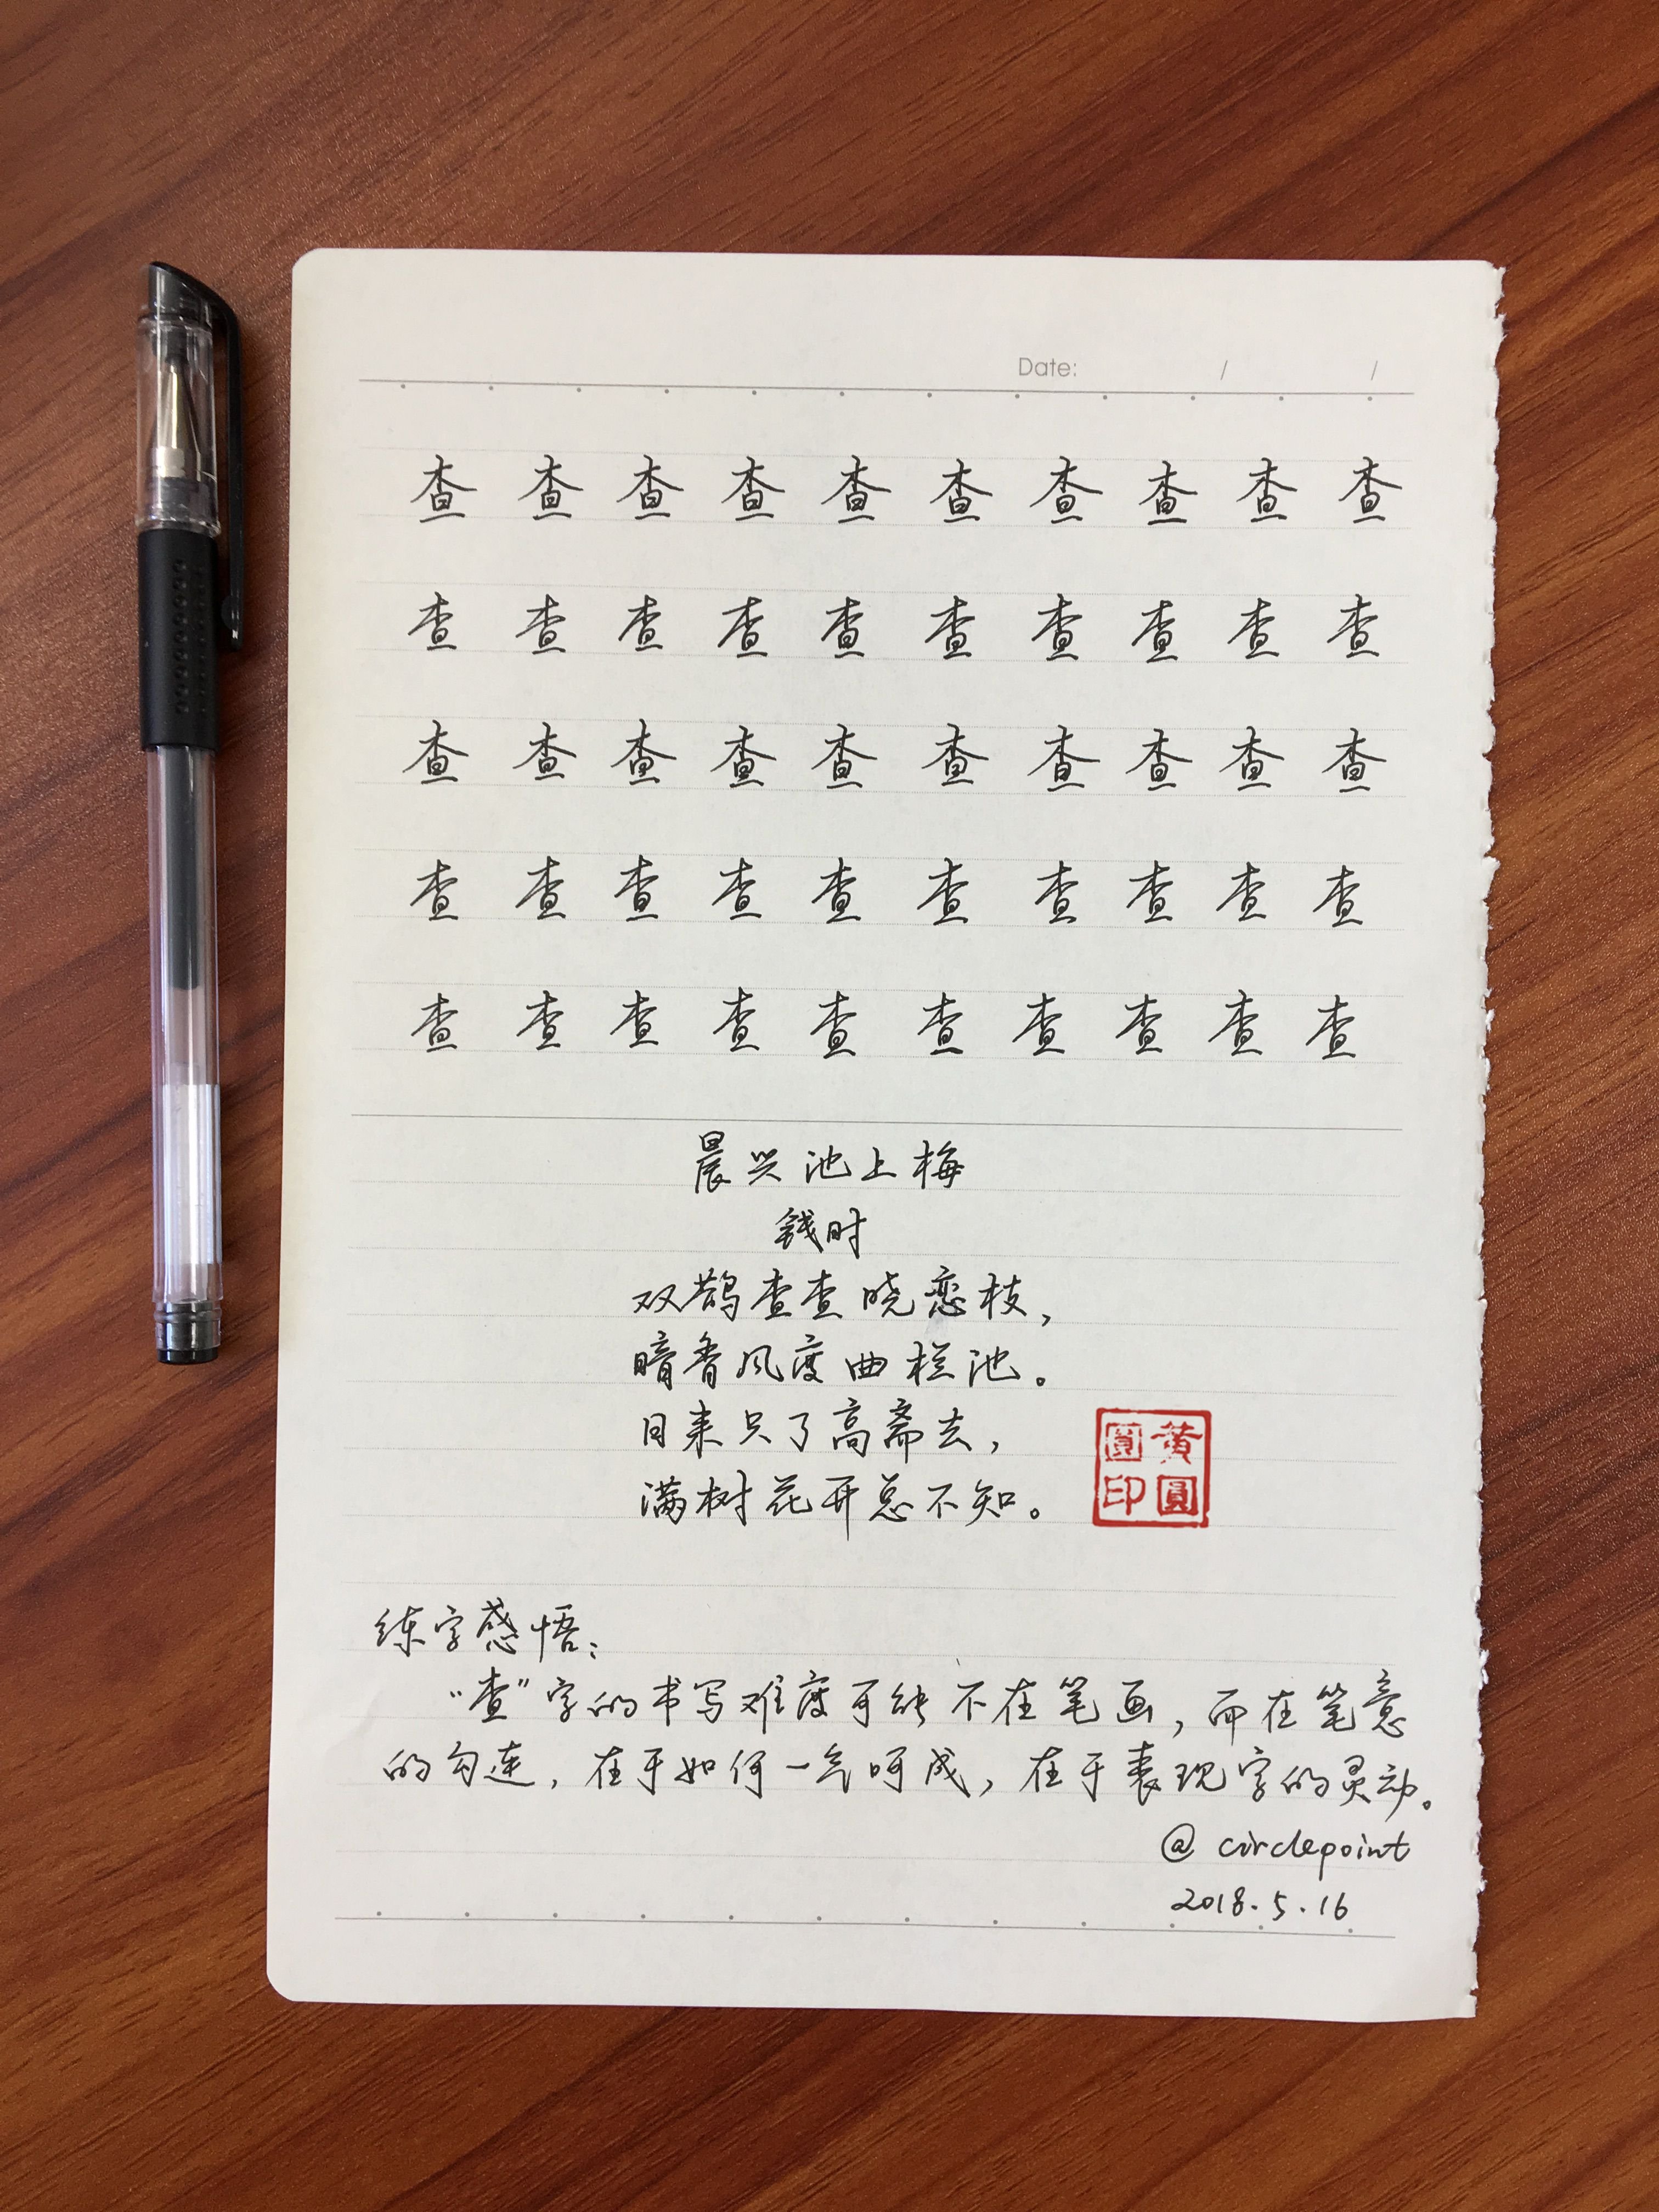 Date: / /
查 查 查 查 查 查 查 查 查 查
查 查 查 查 查 查 查 查 查 查
查 查 查 查 查 查 查 查 查 查
查 查 查 查 查 查 查 查 查 查
查 查 查 查 查 查 查 查 查 查
晨兴池上梅
钱时
双鹊查查晓恋枝，
暗香风度曲栏池。
日来只了高斋去，
满树花开总不知。
黄圓
圓印
练字感悟：
“查”字的书写难度可能不在笔画，而在笔意
的勾连，在于如何一气呵成，在于表现字的灵动。
@ circlepoint
2018.5.16